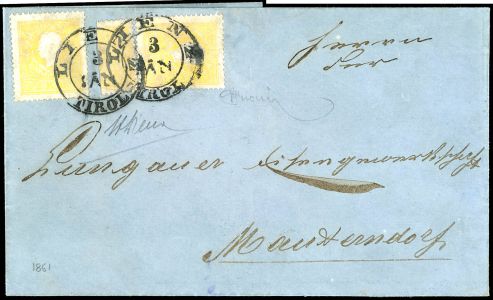 LIENZ
3
JÄN
TIROL
LIENZ
3
JÄN
TIROL
Herrn
Der
Lungauer Eisengewerkschaft
Mauterndorf
1861